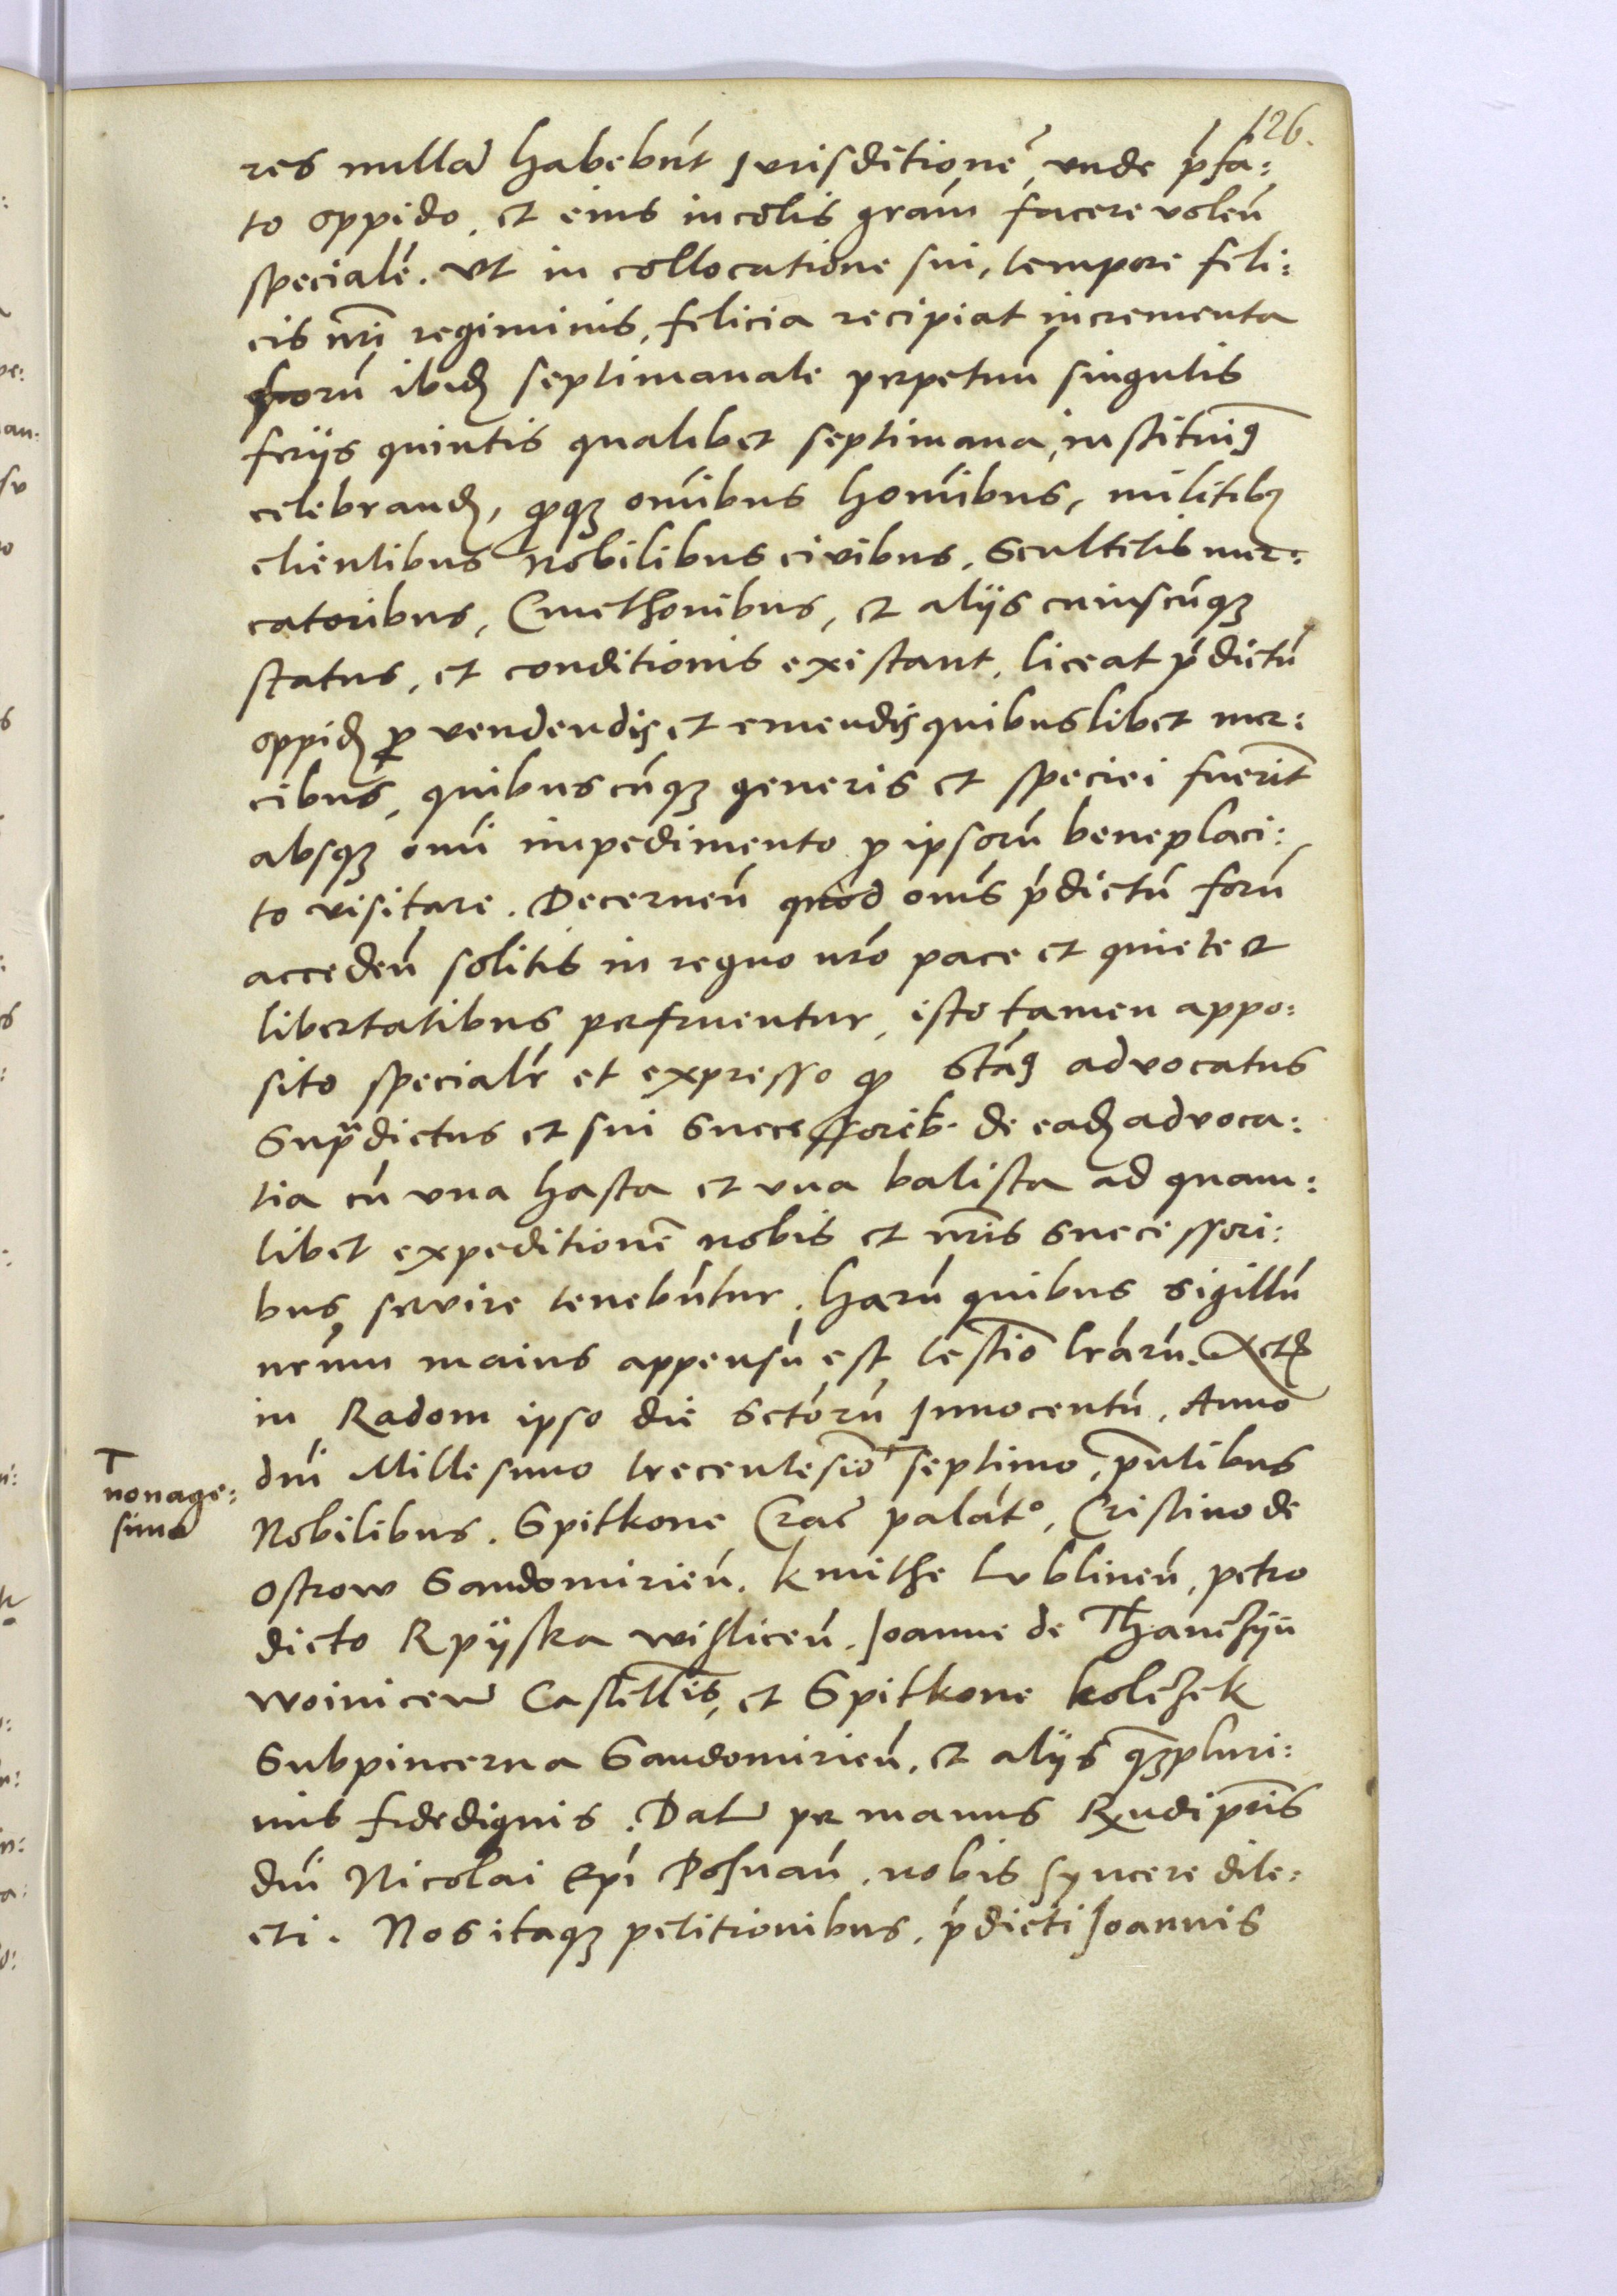 126.
res nullā habebūt Jurisditionē, vnde p̄fa:
to oppido, et eius incolis grām facere voleñ
specialē. Vt in collocatione sui, tempore feli:
cis nr̄i regiminis, felicia recipiat incrementa
forū ibid. septimanale perpetuū singulis
ferijs quintis qualibet septimana, instituiꝯ
celebrand., ꝙꝫ om̄ibus hom̄ibus, militibꝫ
clientibus nobilibus civibus, Scultetis mer:
catoribus, Cmethonibus, et alijs cuiuscūqꝫ
status, et conditionis existant, liceat p̄dictū
oppid. ꝓ vendendis et emendis quibuslibet mer:
cibus, quibuscūqꝫ generis et speciei fuerīt
absqꝫ om̄i impedimento ꝓ ipsorū beneplaci:
to visitare. Decerneñ quod om̄s p̄dictū forū
accedeñ solitis in regno nr̄o pace et quiete et
libertatibus perfruentur, isto tamen appo:
sito specialr̄ et expresso ꝙ Stāꝯ advocatus
Supradictus et sui successorib. de ead. advoca:
tia cū vna hasta et vna balista ad quam:
libet expeditionē nobis et nr̄is successori:
bus, servire tenebūtur. Harū quibus sigillū
nr̄um maius appensū est, testīo lrārū. Actū
in Radom ipso die Sctōrū Innocentū, Anno
dnī Millesimo trecentesīo ⊤ septimo, pn̄tibus
⊤
nonage:
simo
Nobilibus. Spitkone Crac̄ palāt°, Cristino de
Ostrow Sandomirieñ. Kmithe Lublineñ, petro
dicto Rpÿska wisliceñ. Joanne de Thanczÿn
woiniceñ Castellīs, et Spitkone kolczek
Subpincerna Sandomirieñ. et alijs qꝫpluri:
mis fidedignis. Dat per manus Rxndi pr̄is
dnī Nicolai Epī Posnań. nobis syncere dile:
cti. Nos itaqꝫ petitionibus. p̄dicti Joannis